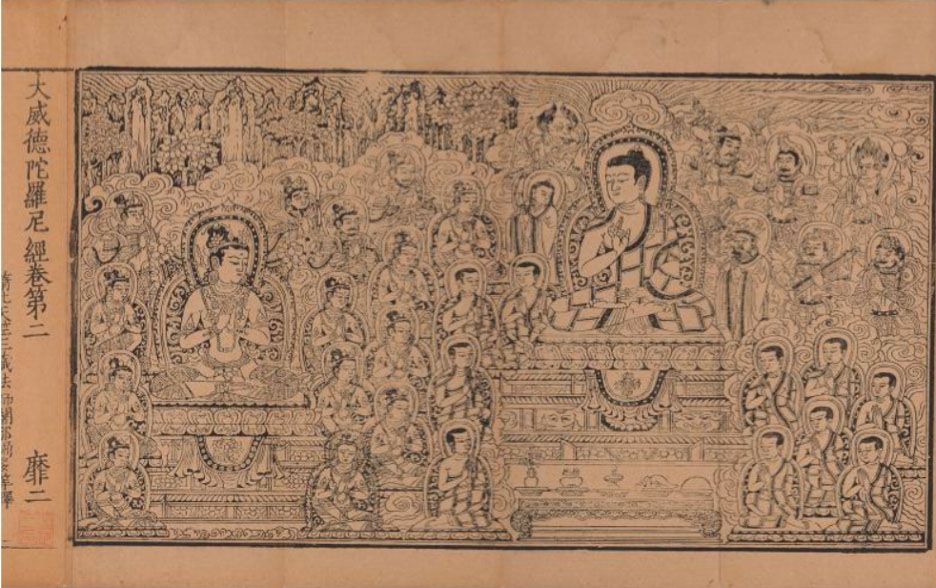 大威德陀羅尼經卷第二 靡二
隋北天竺三藏法師闍那崛多等譯